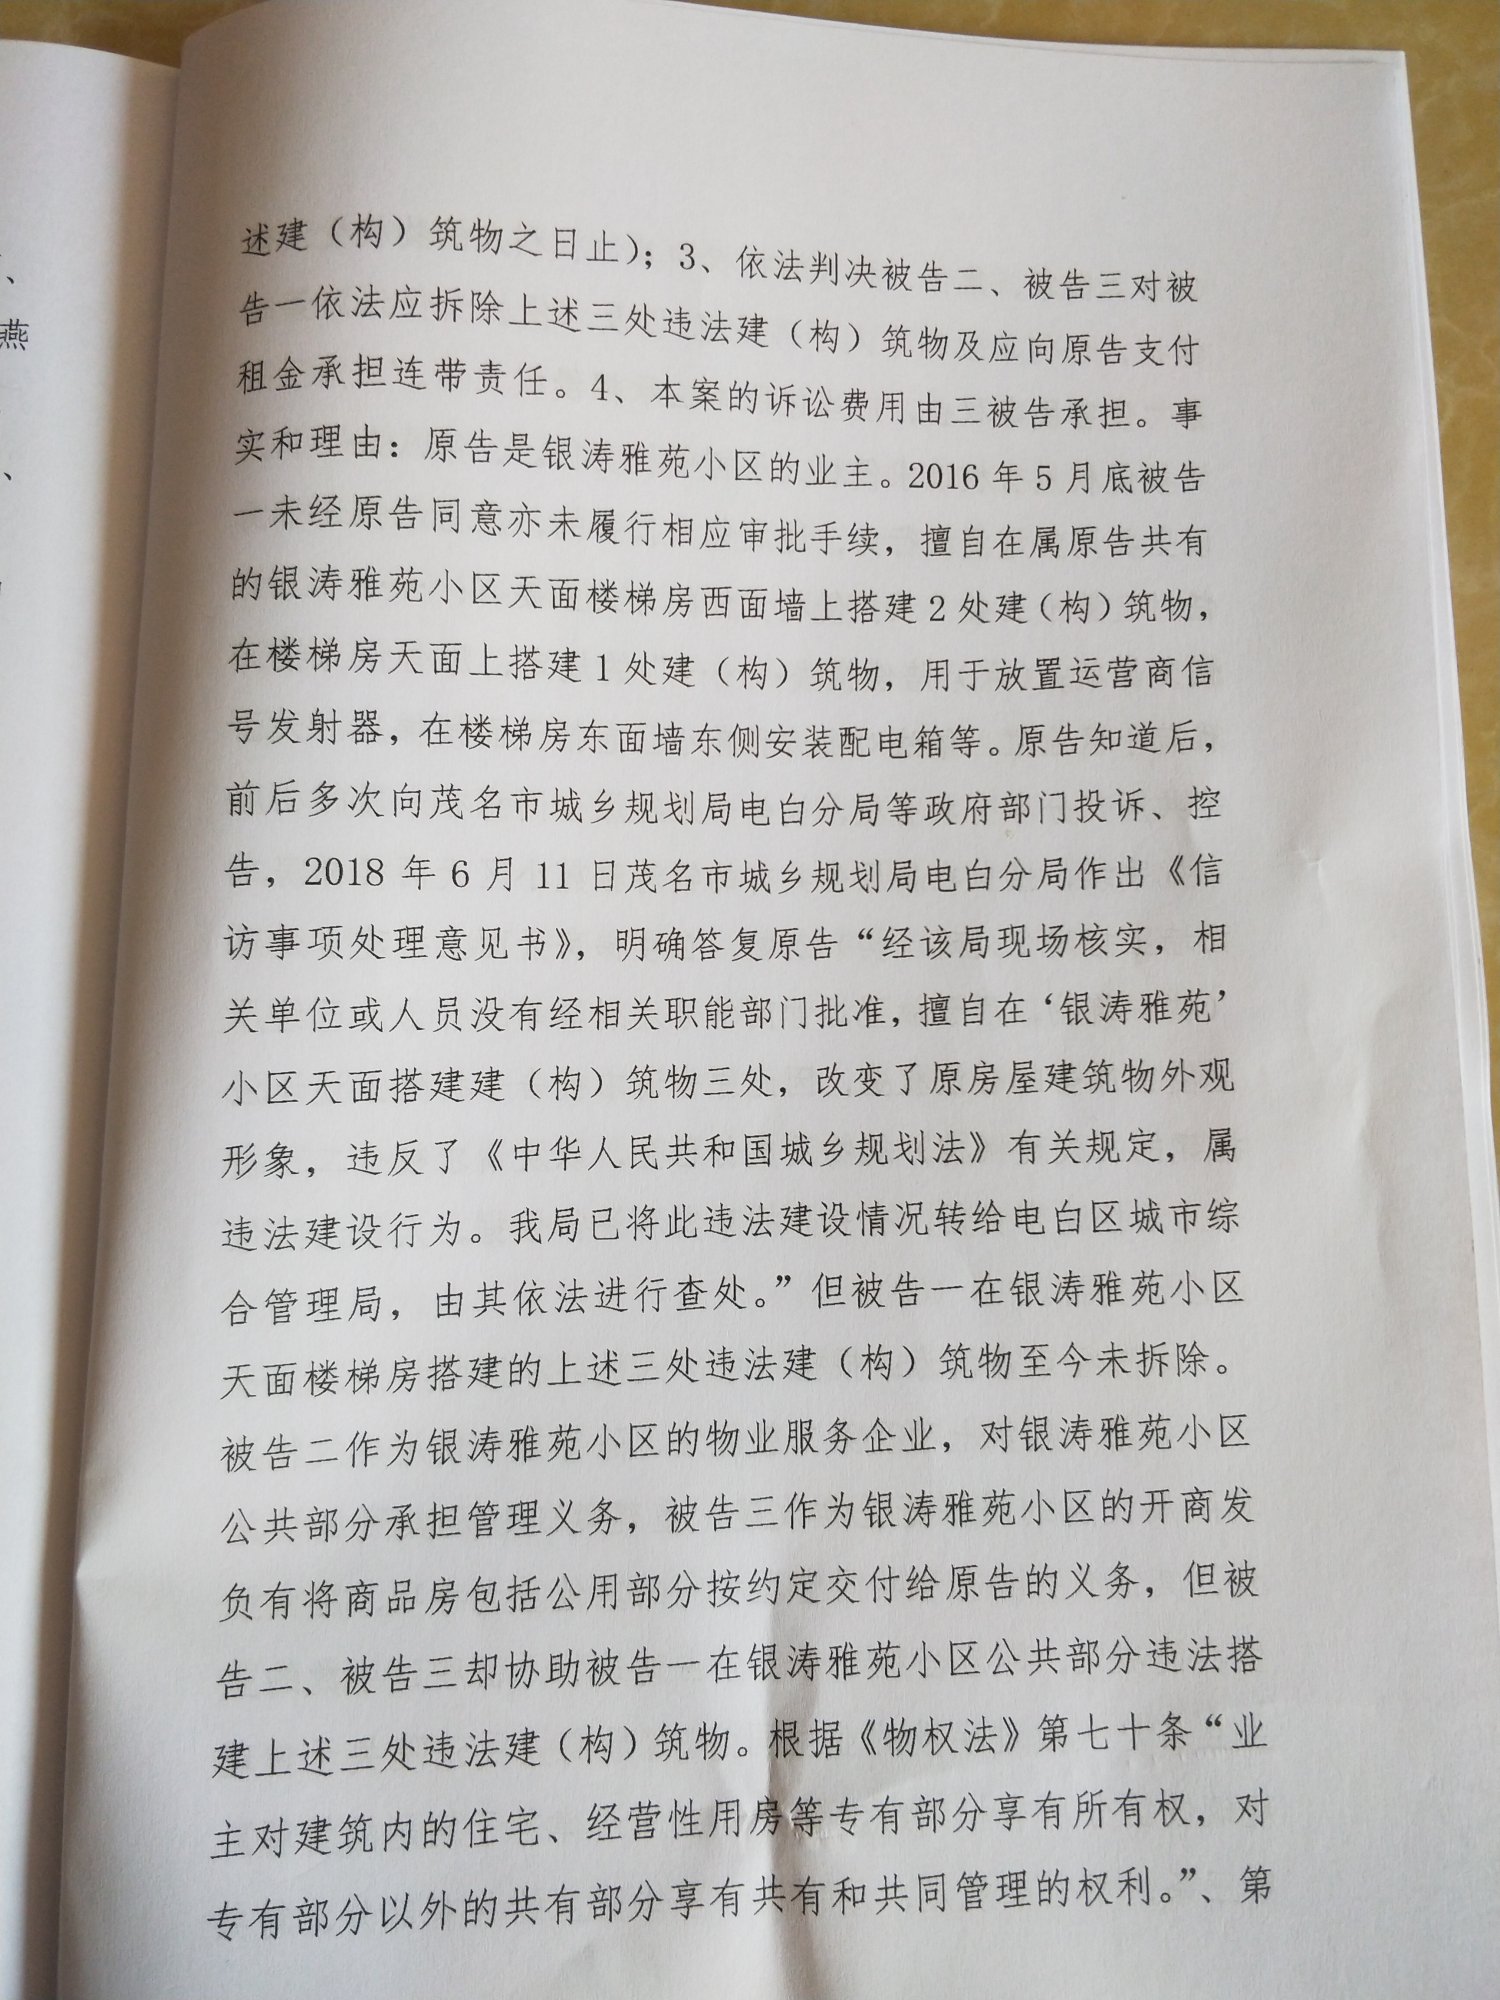 述建（构）筑物之日止）；3、依法判决被告二、被告三对被
告一依法应拆除上述三处违法建（构）筑物及应向原告支付
租金承担连带责任。4、本案的诉讼费用由三被告承担。事
实和理由：原告是银涛雅苑小区的业主。2016年5月底被告
一未经原告同意亦未履行相应审批手续，擅自在属原告共有
的银涛雅苑小区天面楼梯房西面墙上搭建2处建（构）筑物，
在楼梯房天面上搭建1处建（构）筑物，用于放置运营商信
号发射器，在楼梯房东面墙东侧安装配电箱等。原告知道后，
前后多次向茂名市城乡规划局电白分局等政府部门投诉、控
告，2018年6月11日茂名市城乡规划局电白分局作出《信
访事项处理意见书》，明确答复原告“经该局现场核实，相
关单位或人员没有经相关职能部门批准，擅自在‘银涛雅苑’
小区天面搭建建（构）筑物三处，改变了原房屋建筑物外观
形象，违反了《中华人民共和国城乡规划法》有关规定，属
违法建设行为。我局已将此违法建设情况转给电白区城市综
合管理局，由其依法进行查处。”但被告一在银涛雅苑小区
天面楼梯房搭建的上述三处违法建（构）筑物至今未拆除。
被告二作为银涛雅苑小区的物业服务企业，对银涛雅苑小区
公共部分承担管理义务，被告三作为银涛雅苑小区的开商发
负有将商品房包括公用部分按约定交付给原告的义务，但被
告二、被告三却协助被告一在银涛雅苑小区公共部分违法搭
建上述三处违法建（构）筑物。根据《物权法》第七十条“业
主对建筑内的住宅、经营性用房等专有部分享有所有权，对
专有部分以外的共有部分享有共有和共同管理的权利。”、第
、
燕
、